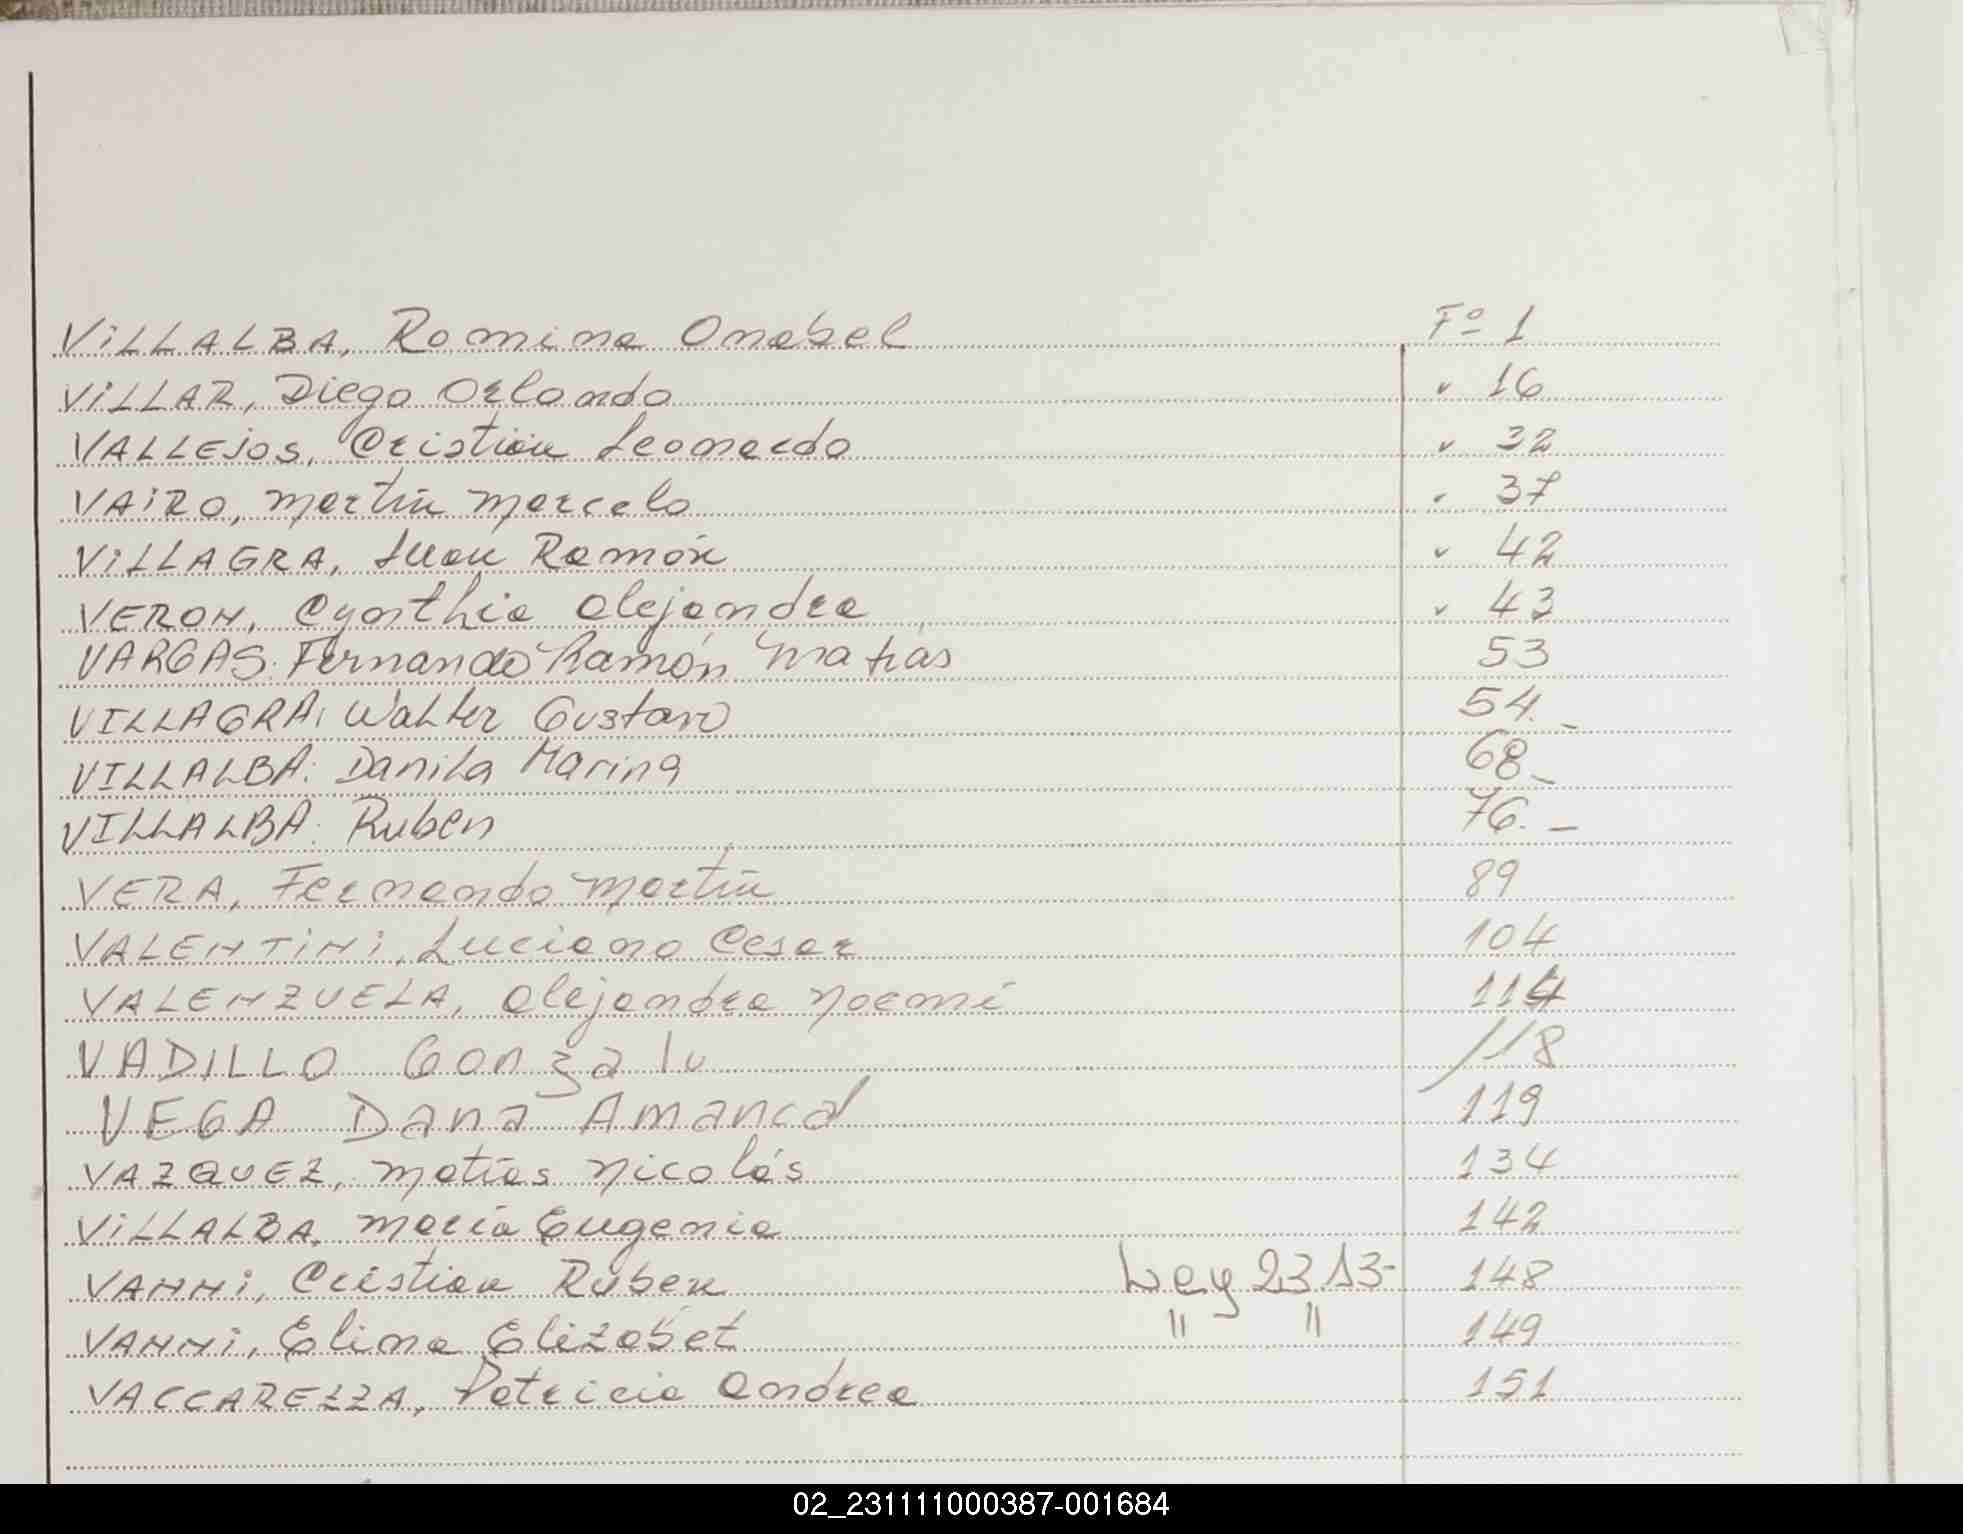 VILLALBA, Romina Anabel Fº 1
VILLAR, Diego Orlando " 16
VALLEJOS, Cristian Leonardo " 32
VAIRO, Martín Marcelo " 37
VILLAGRA, Juan Ramón " 42
VERON, Cynthia Alejandra " 43
VARGAS: Fernando Ramón Matias 53
VILLAGRA, Walter Gustavo 54.-
VILLALBA: Danila Marina 68-
VILLALBA: Ruben 76.-
VERA, Fernando Martín 89
VALENTINI, Luciano Cesar 104
VALENZUELA, Alejandra Noemí 114
VADILLO Gonzalo 118
VEGA Dana Amancd 119
VAZQUEZ, Matías Nicolás 134
VILLALBA, María Eugenia 142
VANNI, Cristian Ruben Ley 23.13- 148
VANNI, Elina Elizabet " " 149
VACCAREZZA, Patricia Andrea 151
02_231111000387-001684